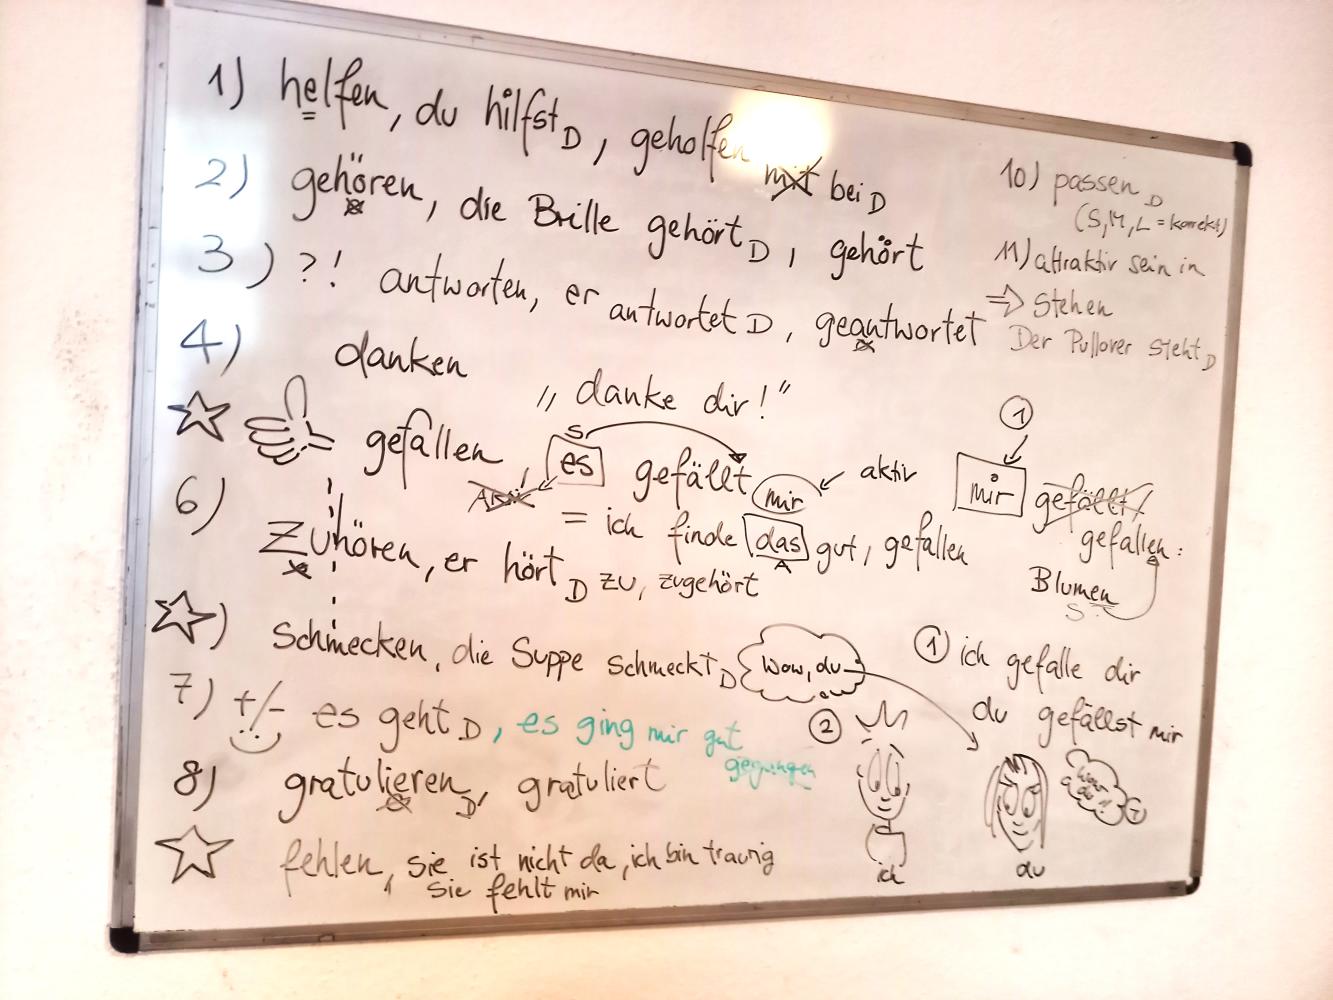 1) helfen, du hilfst D, geholfen mit bei D
2) gehören, die Brille gehört D, gehört
3) ?! antworten, er antwortet D, geantwortet
4) danken
„ danke dir!"
gefallen, es gefällt mir
S
aktiv
= ich finde das gut, gefallen
A
6) Zuhören, er hört D zu, zugehört
) Schmecken, die Suppe schmeckt D
Wow, du
7) +/- es geht D, es ging mir gut
gegangen
8) gratulieren D, gratuliert
fehlen, sie ist nicht da, ich bin traurig
sie fehlt mir
10) passen D
(S, M, L = korrekt)
11) attraktiv sein in
⇒ stehen
Der Pullover steht D
1
mir gefällt!
gefallen:
Blumen
S
1 ich gefalle dir
du gefällst mir
2
ich
du